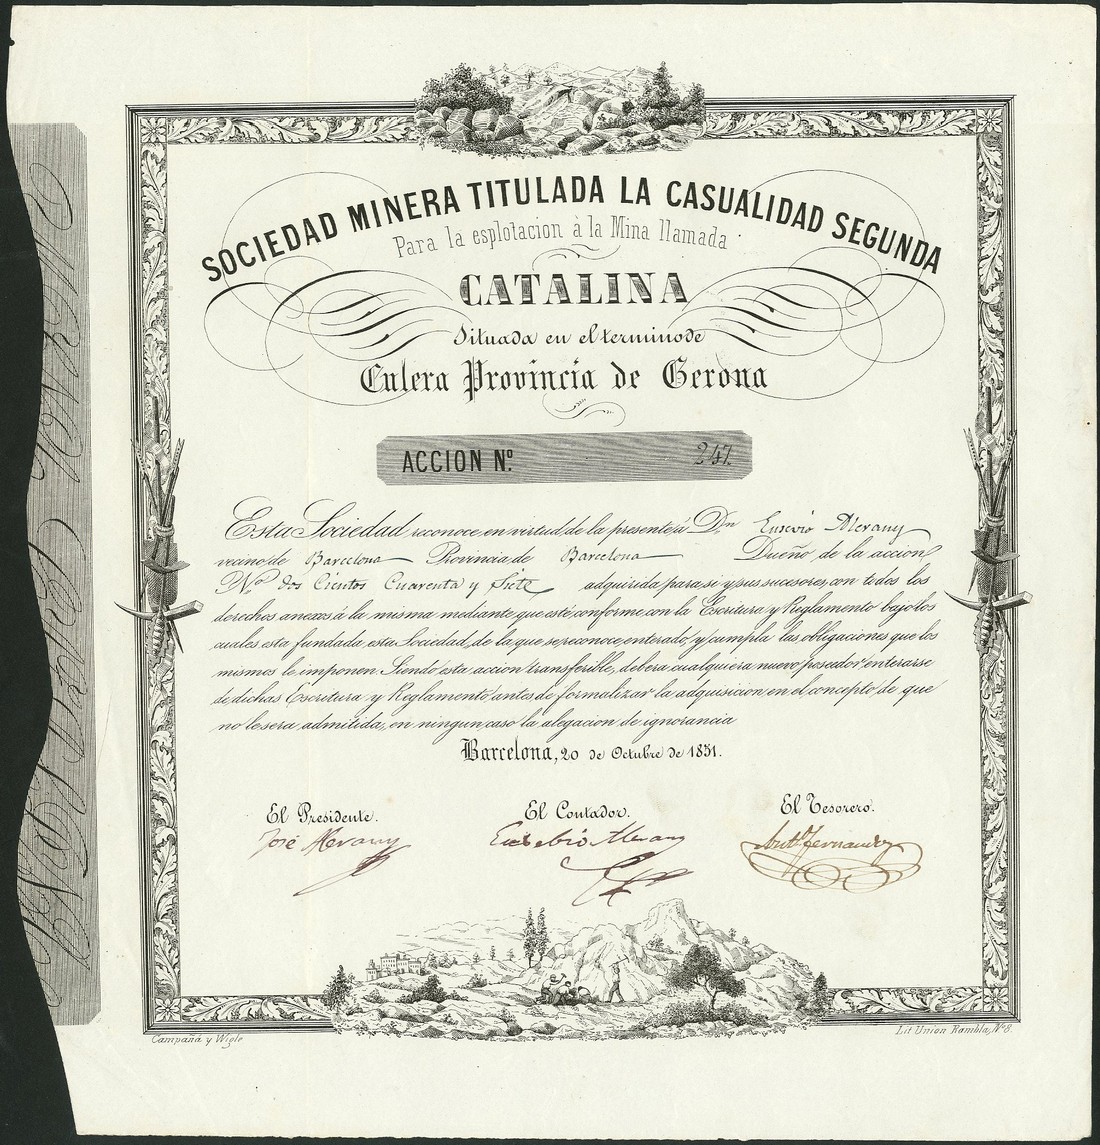 SOCIEDAD MINERA TITULADA LA CASUALIDAD SEGUNDA
Para la esplotacion à la Mina llamada
CATALINA
Situada en el termino de
Culera Provincia de Gerona
ACCION Nº. 247.
Esta Sociedad reconoce en virtud de la presente á Dn
vecino de Barcelona Provincia de Barcelona Dueño de la accion
Nº dos Cientos Cuarenta y Siete adquirida para si y sus sucesores, con todos los
derechos anexos á la misma mediante que esté conforme con la Escritura y Reglamento bajo los
cuales esta fundada esta Sociedad, de la que se reconoce enterado, y cumpla las obligaciones que los
mismos le imponen. Siendo esta accion transferible, debera cualquiera nuevo poseedor enterarse
de dichas Escritura y Reglamento antes de formalizar la adquisicion en el concepto de que
no le sera admitida, en ningun caso la alegacion de ignorancia
Barcelona, 20 de Octubre de 1851.
El Presidente. El Contador. El Tesorero.
José Eusebio Antº Fernandez
Campaná y Wigle Lit Union Rambla, Nº 8.